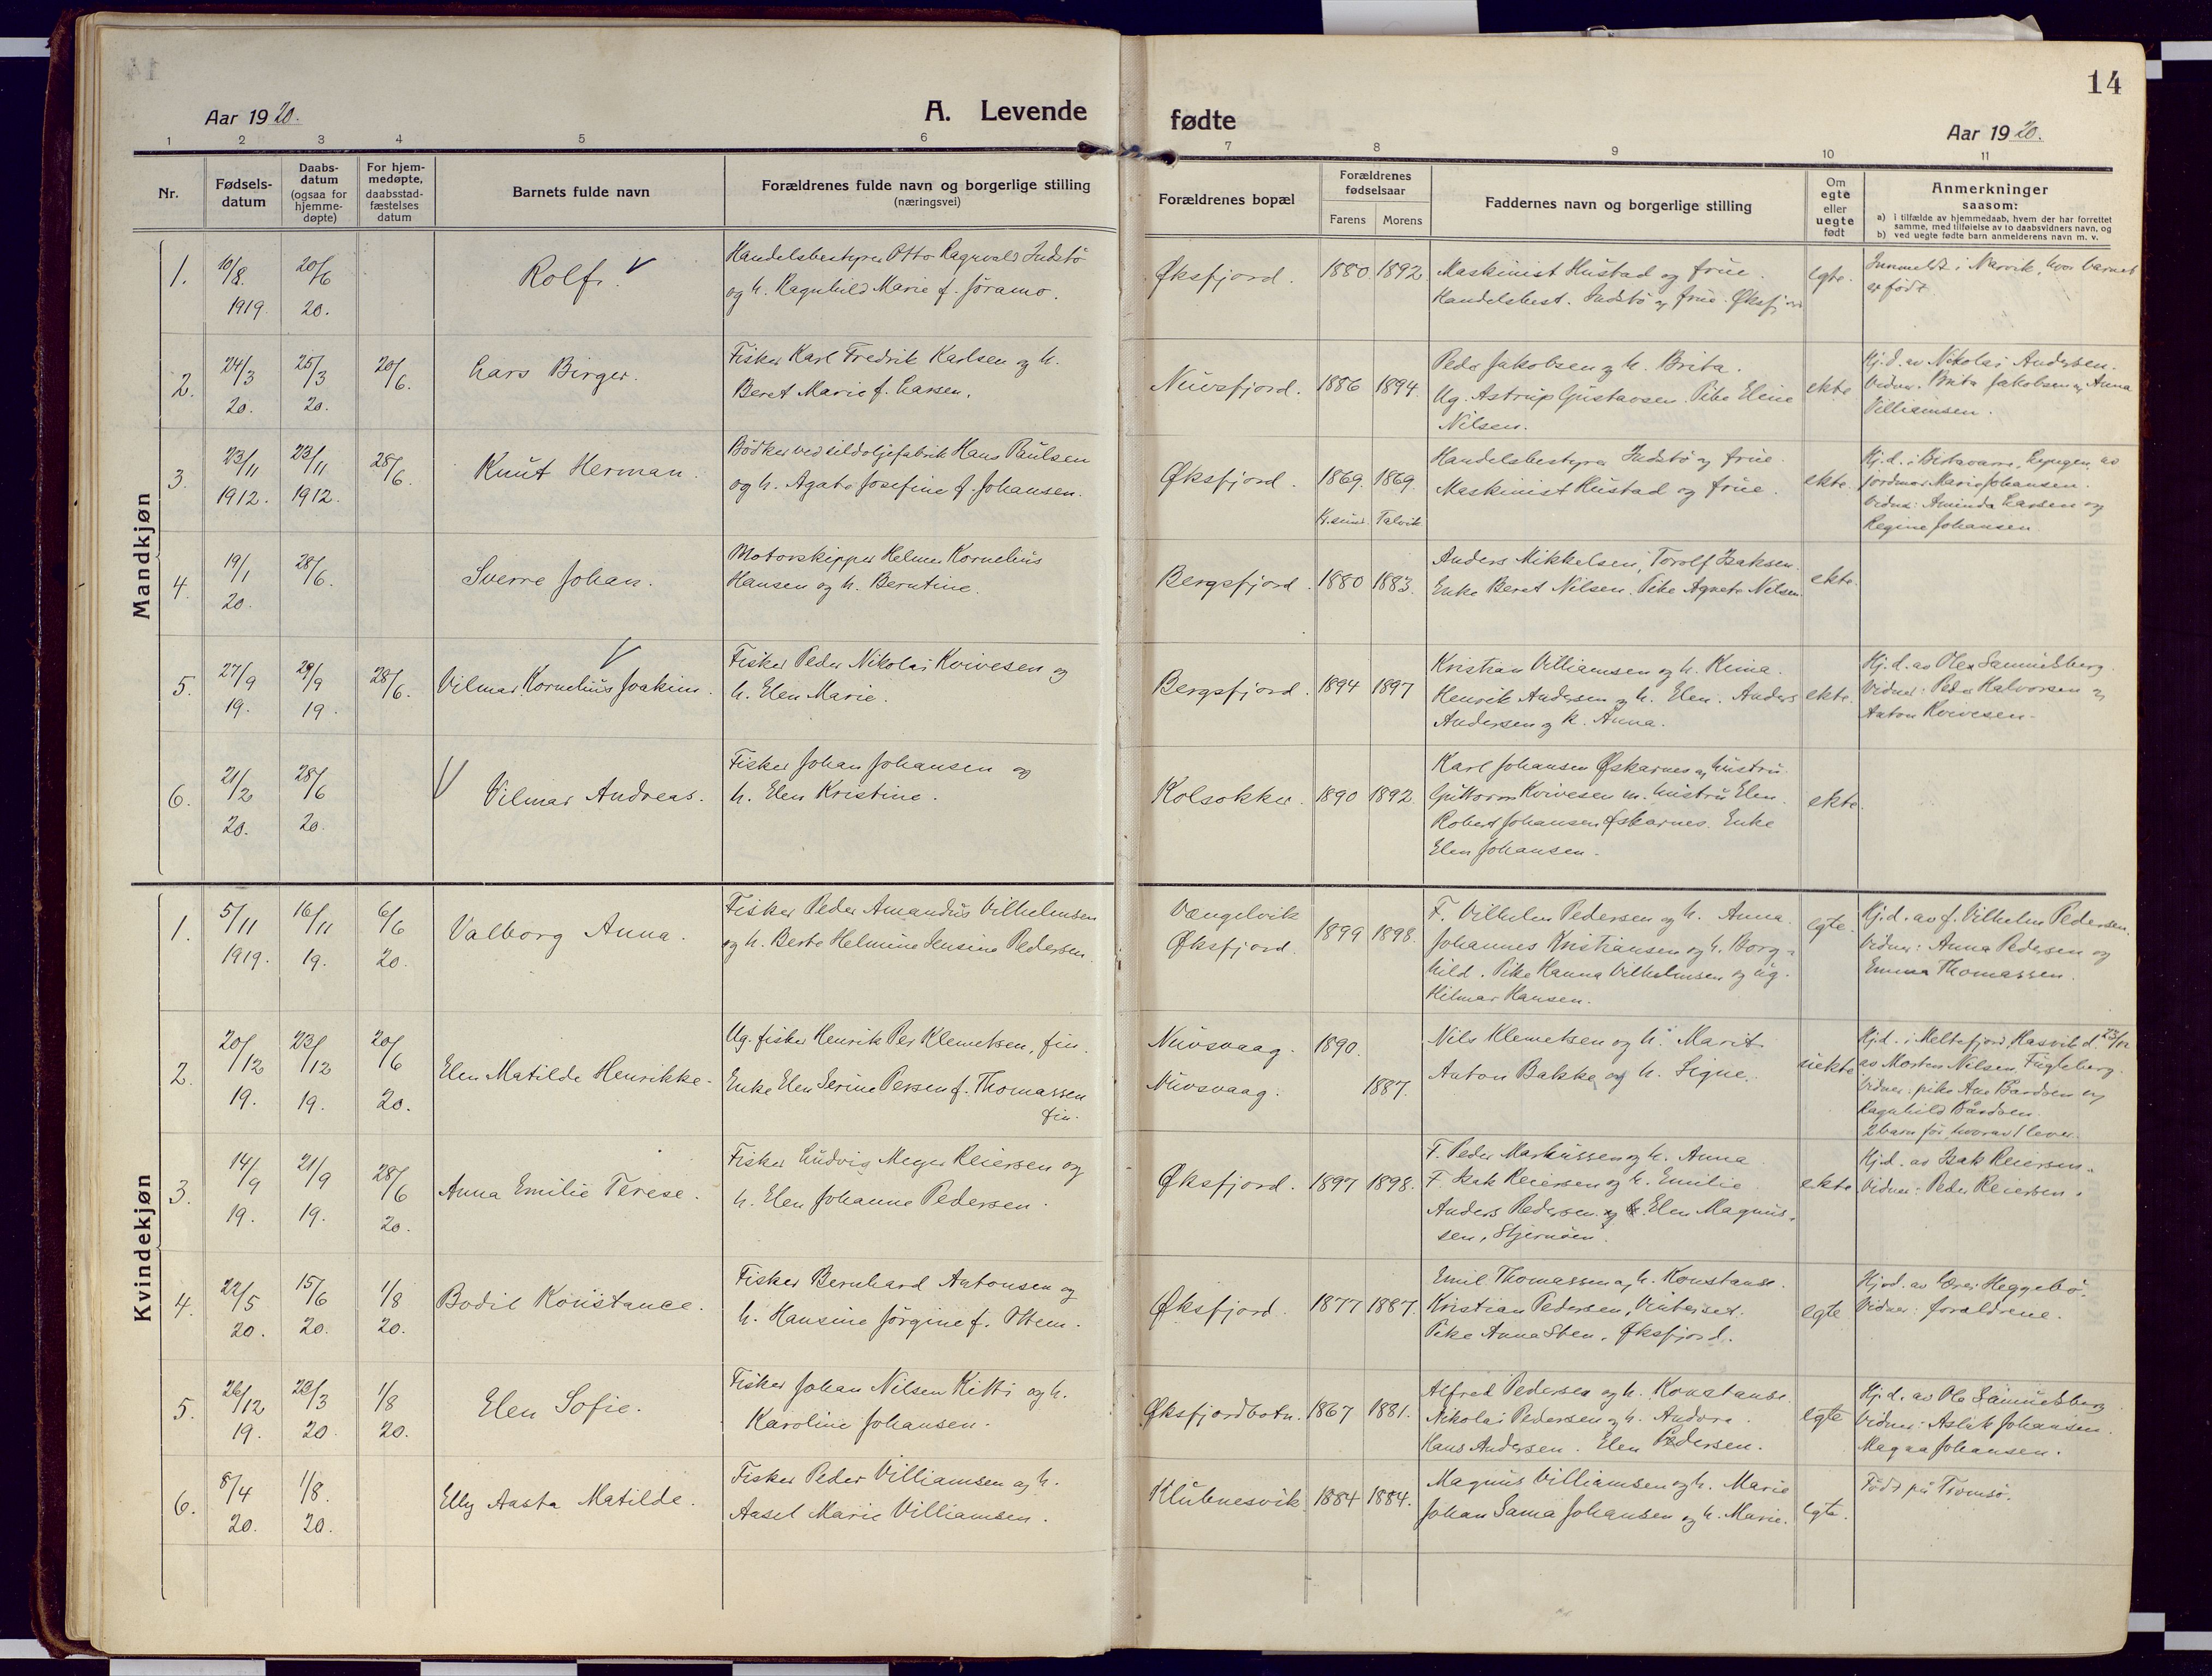 14
Aar 1920.
A. Levende fødte
Aar 1920.
1 2 3 4 5 6 7 8 9 10 11
Nr.
Fødsels-
datum
Daabs-
datum
(ogsaa for
hjemme-
døpte)
For hjem-
medøpte,
daabsstad-
fæstelses
datum
Barnets fulde navn
Forældrenes fulde navn og borgerlige stilling
(næringsvei)
Forældrenes bopæl
Forældrenes
fødselsaar
Farens Morens
Faddernes navn og borgerlige stilling
Om
egte
eller
uegte
født
Anmerkninger
saasom:
a) i tilfælde av hjemmedaab, hvem der har forrettet
samme, med tilføielse av to daabsvidners navn, og
b) ved uegte fødte barn anmelderens navn m. v.
Mandkjøn
1.
10/8.
1919.
20/6
20.
Rolf.
Handelsbestyrer Otto Ragnvald Indstö
og h. Ragnhild Marie f. Jöramo.
Øksfjord.
1880 1892.
Maskinist Hustad og frue.
Handelsbest. Indstö og frue. Øksfjord
egte.
Innmeldt i Narvik, hvor barnet
er født
2.
24/3
20.
25/3
20.
20/6.
Lars Birger.
Fisker Karl Fredrik Karlsen og h.
Beret Marie f. Larsen.
Nuvsfjord.
1886 1894.
Peder Jakobsen og h. Brita.
Ug. Astrup Gustavsen. Pike Eline
Nilsen.
ekte
Hj.d. av Nikolai Andersen.
Vidner: Brita Jakobsen og Anna
Villiamsen.
3.
23/11
1912.
23/11
1912.
28/6.
Knut Herman.
Bödker ved sildoljefabrik Hans Paulsen
og h. Agate Josefine f. Johansen.
Øksfjord.
1869. 1869.
Kr.sund. Talvik
Handelsbestyrer Indstö og frue.
Maskinist Hustad og frue.
ekte.
Hj.d. i Birtavarre, Lyngen, av
jordmor Marie Johansen.
Vidner: Aminda Larsen og
Regine Johansen.
4.
19/1
20.
28/6.
Sverre Johan.
Motorskipper Helmer Kornelius
Hansen og h. Berntine.
Bergsfjord.
1880 1883.
Anders Mikkelsen, Torolf Isaksen.
Enke Beret Nilsen. Pike Agnete Nilsen
ekte.
5.
27/9
19.
29/9
19.
28/6.
Vilmar Kornelius Joakim.
Fisker Peder Nikolai Kvivesen og
h. Elen Marie.
Bergsfjord.
1894 1897
Kristian Villiamsen og h. Keina.
Henrik Andersen og h. Elen. Anders
Andersen og h. Anna.
ekte.
Hj.d. av Ole Samuelsberg.
Vidner: Peder Halvorsen og
Anton Kvivesen.
6.
21/2
20.
28/6
20.
Vilmar Andreas.
Fisker Johan Johansen og
h. Elen Kristine.
Kolsokker.
1890 1892.
Karl Johansen Øskarnes og hustru.
Guttorm Kvivesen m. hustru Elen.
Robert Johansen Øskarnes. Enke
Elen Johansen.
ekte.
Kvindekjøn
1.
5/11
1919.
16/11
19.
6/6
20.
Valborg Anna.
Fisker Peder Amandus Vilhelmsen
og h. Berte Helmine Jensine Pedersen.
Vængelvik
Øksfjord.
1899 1898.
F. Vilhelm Pedersen og h. Anna.
Johannes Kristiansen og h. Borg-
hild. Pike Hanna Vilhelmsen og ug.
Hilmar Hansen.
egte.
Hj.d. av f. Vilhelm Pedersen.
Vidner: Anna Pedersen og
Emma Thomassen.
2.
20/12
19.
23/12
19.
20/6
20.
Elen Matilde Henrikke.
Ug. fisker Henrik Per Klemetsen, fin.
Enke Elen Serine Persen f. Thomassen
fin.
Nuvsvaag.
Nuvsvaag.
1890.
1887.
Nils Klemetsen og h. Marit.
Anton Bakke og h. Signe.
uekte
Hj.d. i Meltefjord, Hasvik d. 23/12
av Morten Nilsen, Fugleberg.
Vidner: pike Ane Bårdsen og
Ragnhild Bårdsen.
2 barn før, hvorav 1 lever.
3.
14/9
19.
21/9
19.
28/6
20.
Anna Emilie Terese.
Fisker Ludvig Meyer Reiersen og
h. Elen Johanne Pedersen.
Øksfjord.
1897 1898.
F. Peder Markussen og h. Anna
F. Isak Reiersen og h. Emilie
Anders Pedersen og h. Elen Magnus-
sen, Stjernöen.
ekte
Hj.d. av Isak Reiersen.
Vidner: Peder Reiersen.
4.
22/5
20.
15/6
20.
1/8
20.
Bodil Konstance.
Fisker Bernhard Antonsen og
h. Hansine Jörgine f. Ottem.
Øksfjord.
1877 1887.
Emil Thomassen og h. Konstanse.
Kristian Pedersen, Vinterset.
Pike Anna Sten, Øksfjord.
egte
Hj.d. av Lærer Heggebö.
Vidner: foreldrene.
5.
26/12
19.
28/3
20.
1/8
20.
Elen Sofie.
Fisker Johan Nilsen Kitti og h.
Karoline Johansen.
Øksfjordbotn.
1867 1881.
Alfred Pedersen og h. Konstanse.
Nikolai Pedersen og h. Andora.
Hans Andersen. Elen Pedersen.
egte
Hj.d. av Ole Samuelsberg.
Vidner: Aslak Johansen.
Magna Johansen.
6.
8/4
20.
1/8.
20.
Elly Aasta Matilde.
Fisker Peder Villiamsen og h.
Aasel Marie Villiamsen.
Klubnesvik
1884 1884.
Magnus Villiamsen og h. Marie
Johan Sama Johansen og h. Marie.
egte.
Født på Tromsö.